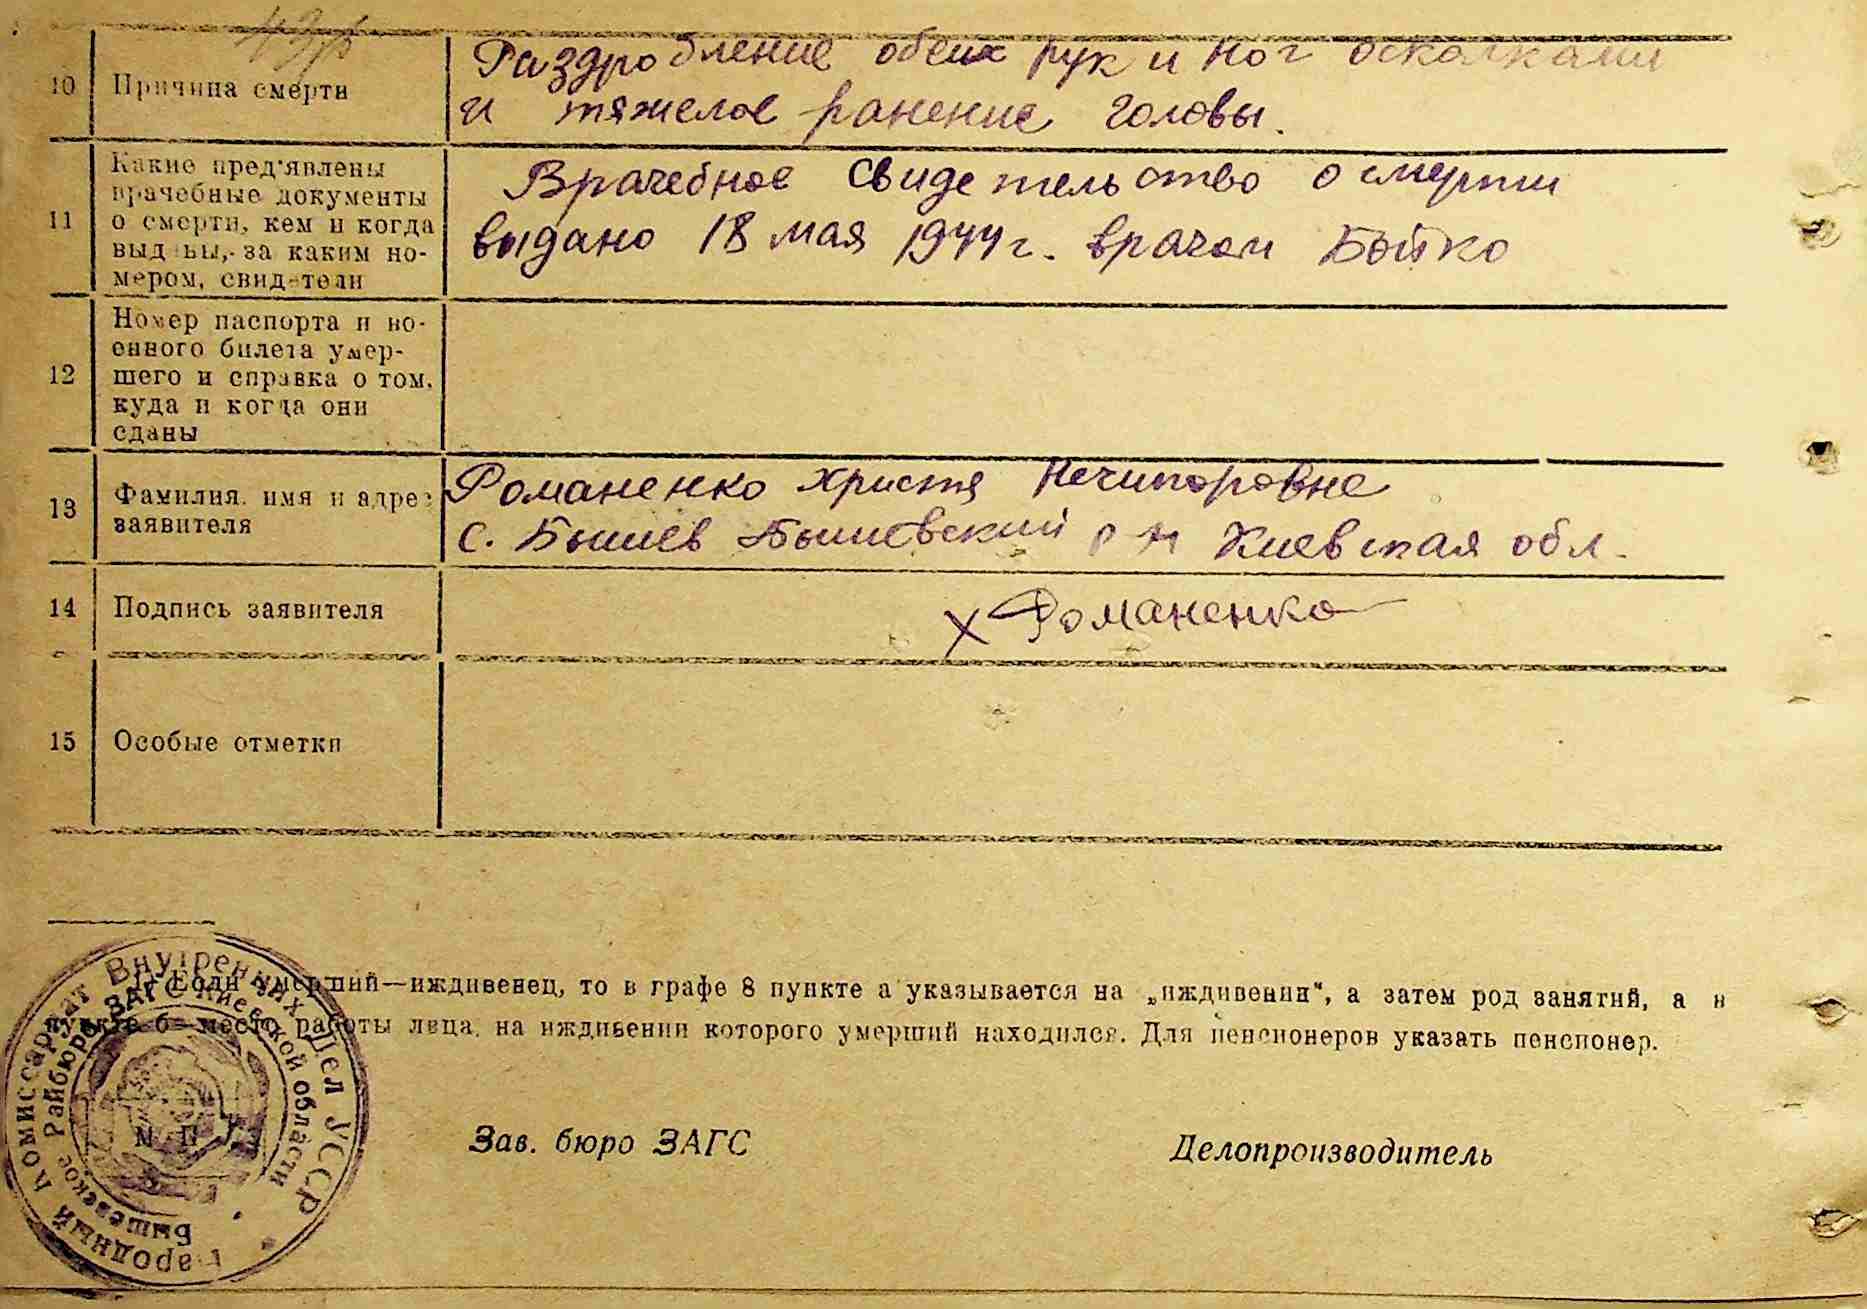 10 Причина смерти
Раздробление обеих рук и ног осколками
и тяжелое ранение головы.
11 Какие пред'явлены
врачебные документы
о смерти, кем и когда
выданы, за каким но-
мером, свидетели
Врачебное свидетельство о смерти
выдано 18 мая 1944 г. врачом Бойко
12 Номер паспорта и во-
енного билета умер-
шего и справка о том,
куда и когда они
сданы
13 Фамилия, имя и адрес
заявителя
Романенко Христя Нечипоровне
с. Бышев Бышевский р-н Киевская обл.
14 Подпись заявителя
х Романенко
15 Особые отметки
1) Если умерший—иждивенец, то в графе 8 пункте а указывается на „иждивении“, а затем род занятий, а в
пункте б— место работы лица, на иждивении которого умерший находился. Для пенсионеров указать пенсионер.
Народный Комиссариат Внутренних Дел УССР
Бышевское Райбюро ЗАГС Киевской области
М. П.
Зав. бюро ЗАГС
Делопроизводитель